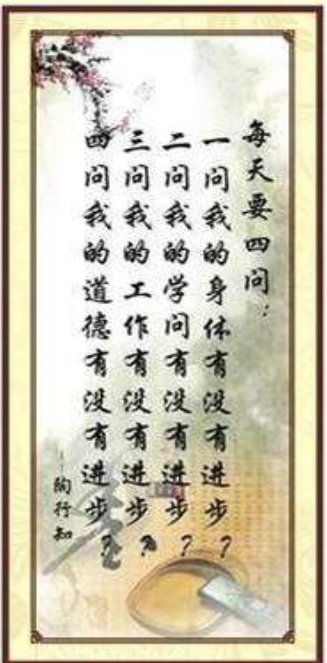 每天要四问：
一问我的身体有没有进步？
二问我的学问有没有进步？
三问我的工作有没有进步？
四问我的道德有没有进步？
陶行知